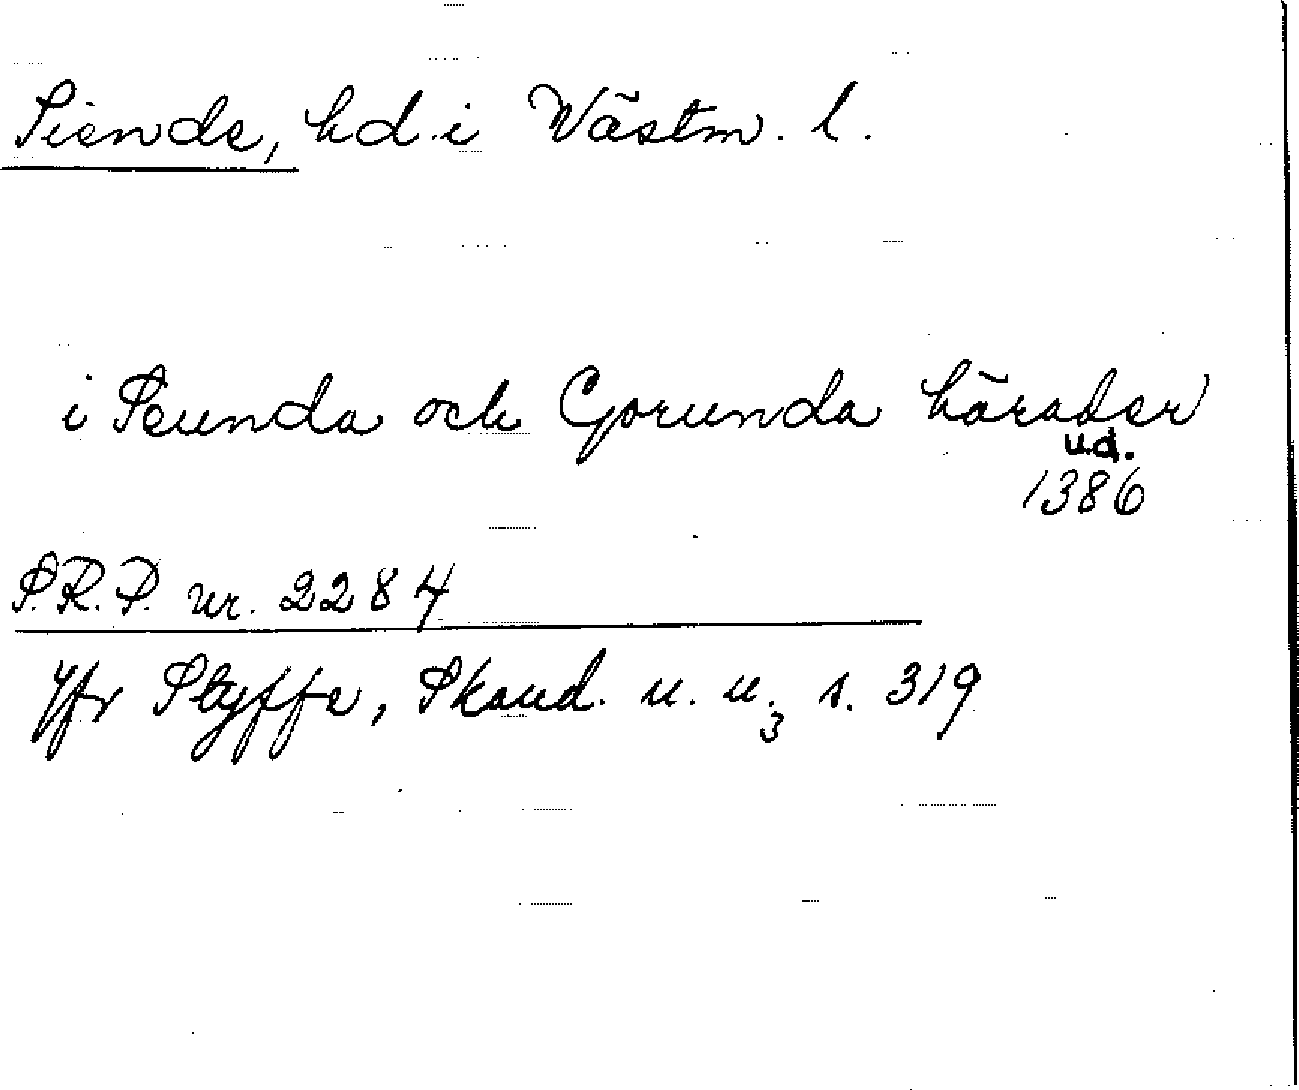 Siende, hd i Västm. l.
i Seunda och Gorunda härader
u.d.
1386
S.R.P. nr. 2284
Jfr Styffe, Skand. u. u.3 s. 319